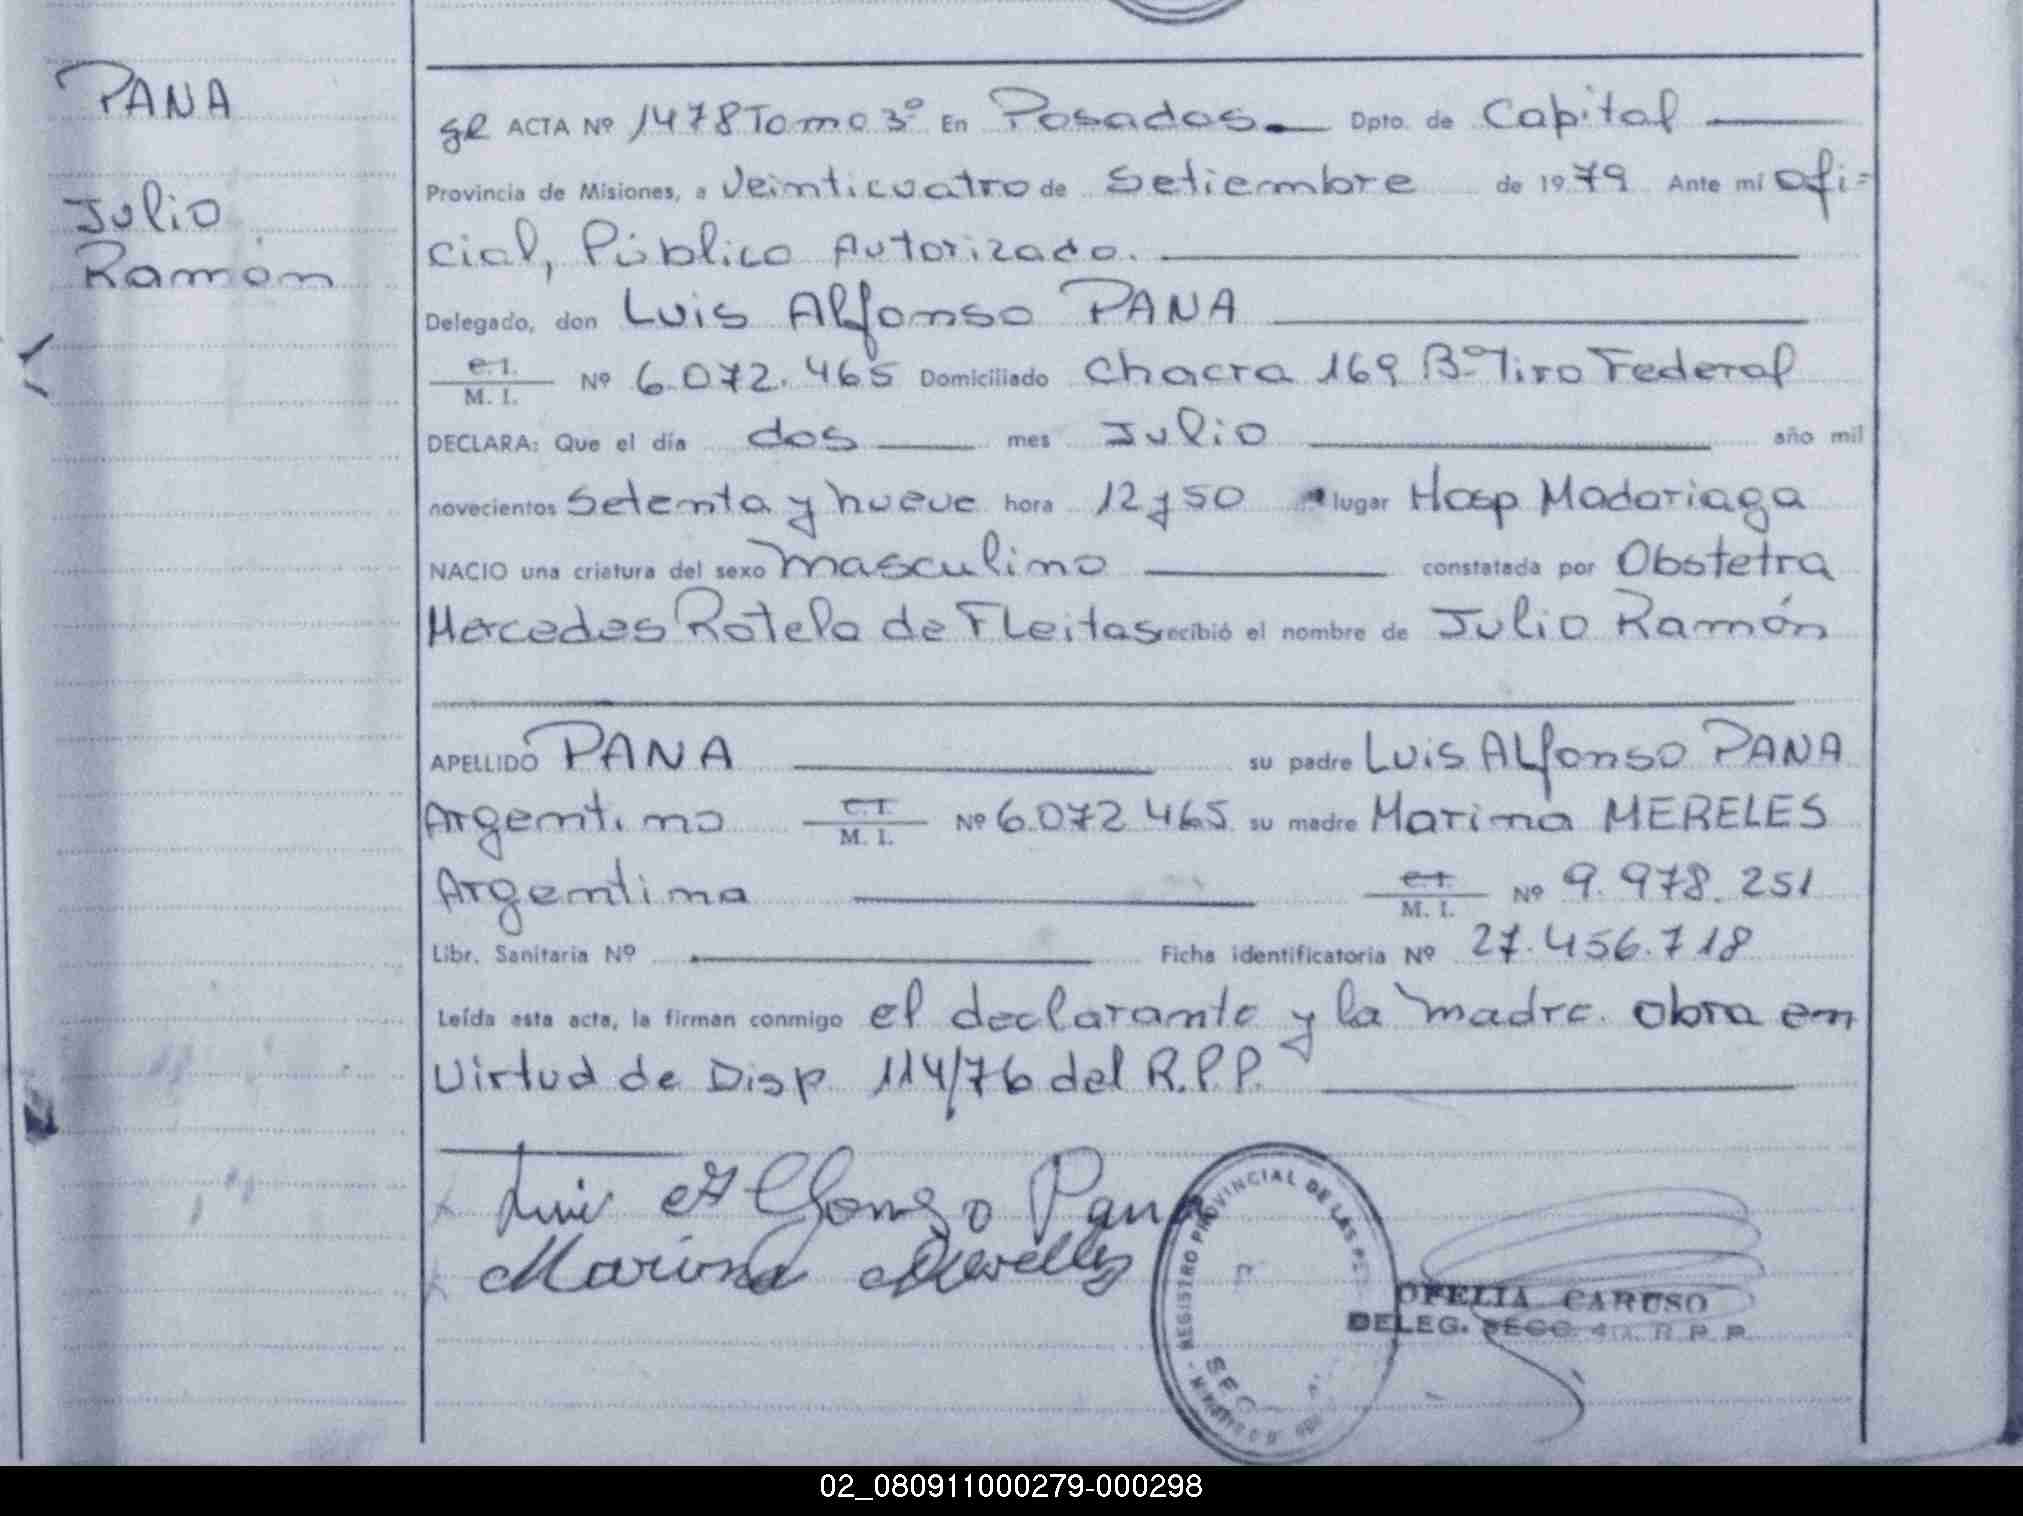 PANA
Julio
Ramón
gR ACTA Nº 1478 Tomo 3º En Posadas. Dpto. de Capital
Provincia de Misiones, a Veinticuatro de Setiembre de 1979 Ante mí ofi=
cial, Público Autorizado.
Delegado, don Luis Alfonso PANA
C.I.
M. I. Nº 6.072.465 Domiciliado Chacra 169 Bº Tiro Federal
DECLARA: Que el día dos mes Julio año mil
novecientos Setenta y nueve hora 12 y 50 lugar Hosp Madariaga
NACIO una criatura del sexo masculino constatada por Obstetra
Mercedes Rotela de Fleitas recibió el nombre de Julio Ramón
APELLIDO PANA su padre Luis Alfonso PANA
Argentino C.I.
M. I. Nº 6.072 465 su madre Marina MERELES
Argentina C.I.
M. I. Nº 9.978.251
Libr. Sanitaria Nº Ficha identificatoria Nº 27.456.718
Leída esta acta, la firman conmigo el declarante y la madre. obra en
Virtud de Disp 114/76 del R.P.P.
Luis Alfonso Pana
Marina Merelles
REGISTRO PROVINCIAL DE LAS
SEC
OFELIA CARUSO
DELEG. SECC. 4ta. R. P. P.
02_080911000279-000298